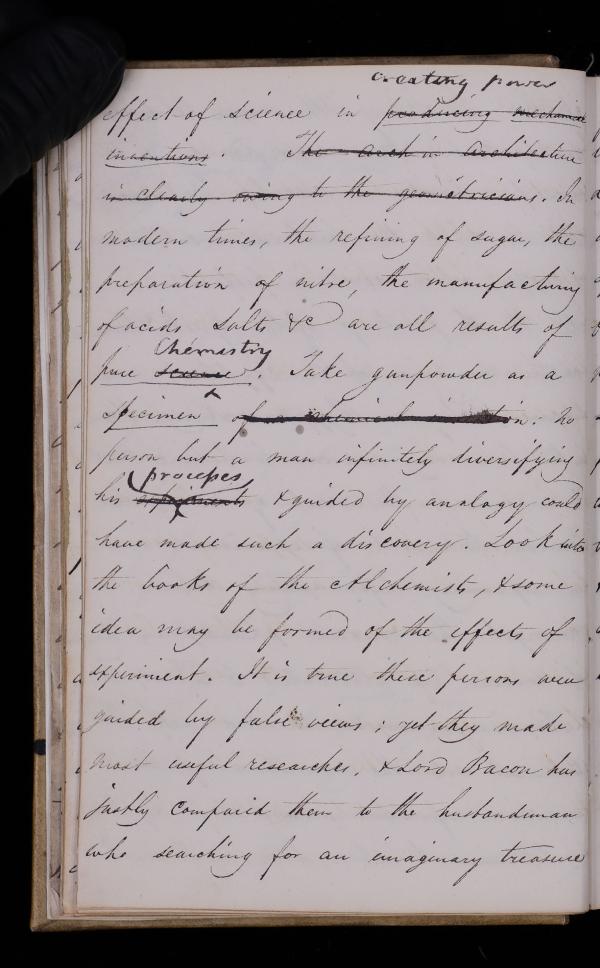 creating power
effect of science in producing mechanical
inventions. The arch in architecture
is clearly owing to the geometricians. In
modern times, the refining of sugar, the
preparation of nitre, the manufacturing
of acids Salts &c are all results of
Chemistry
pure science. Take gunpowder as a
Specimen of a chemical invention: no
person but a man infinitely diversifying
processes
his experiments & guided by analogy could
have made such a discovery. Look into
the books of the Alchemists, & some
idea may be formed of the effects of
experiment. It is true these persons were
guided by false views; yet they made
most useful researches, & Lord Bacon has
justly compared them to the husbandman
who searching for an imaginary treasure